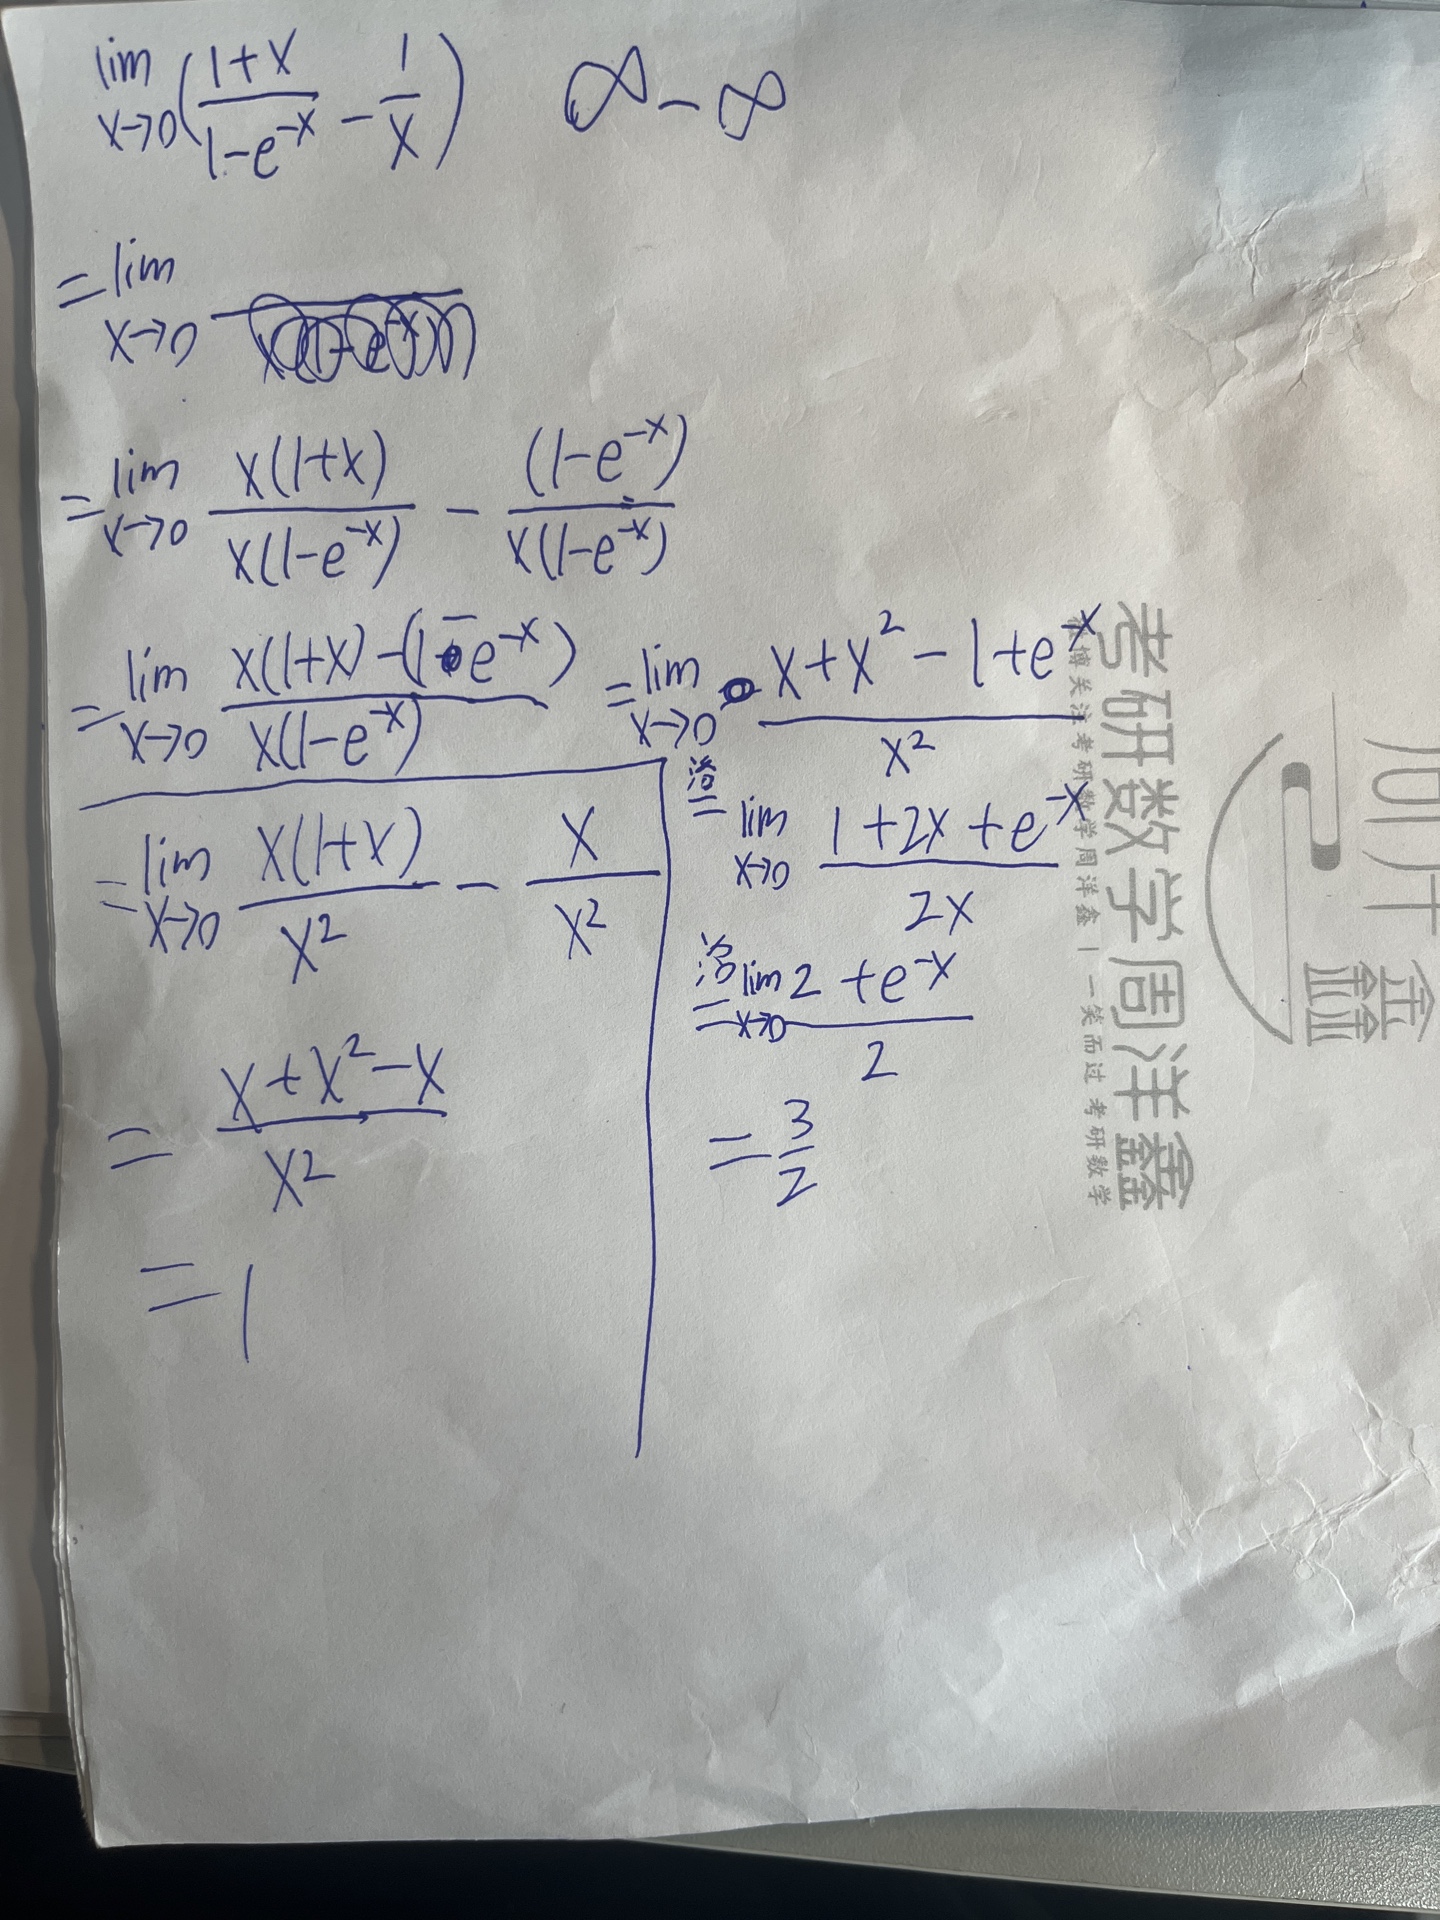 lim x→0 ( (1+x)/(1-e^{-x}) - 1/x ) ∞-∞
= lim x→0
= lim x→0 x(1+x)/(x(1-e^{-x})) - (1-e^{-x})/(x(1-e^{-x}))
= lim x→0 (x(1+x)-(1-e^{-x}))/(x(1-e^{-x})) = lim x→0 (x+x²-1+e^{-x})/x²
= lim x→0 x(1+x)/x² - x/x²
= (x+x²-x)/x²
= 1
洛= lim x→0 (1+2x+e^{-x})/2x
洛= lim x→0 (2+e^{-x})/2
= 3/2
考研数学周洋鑫
博关注考研数学周洋鑫 | 一笑而过考研数学
鑫